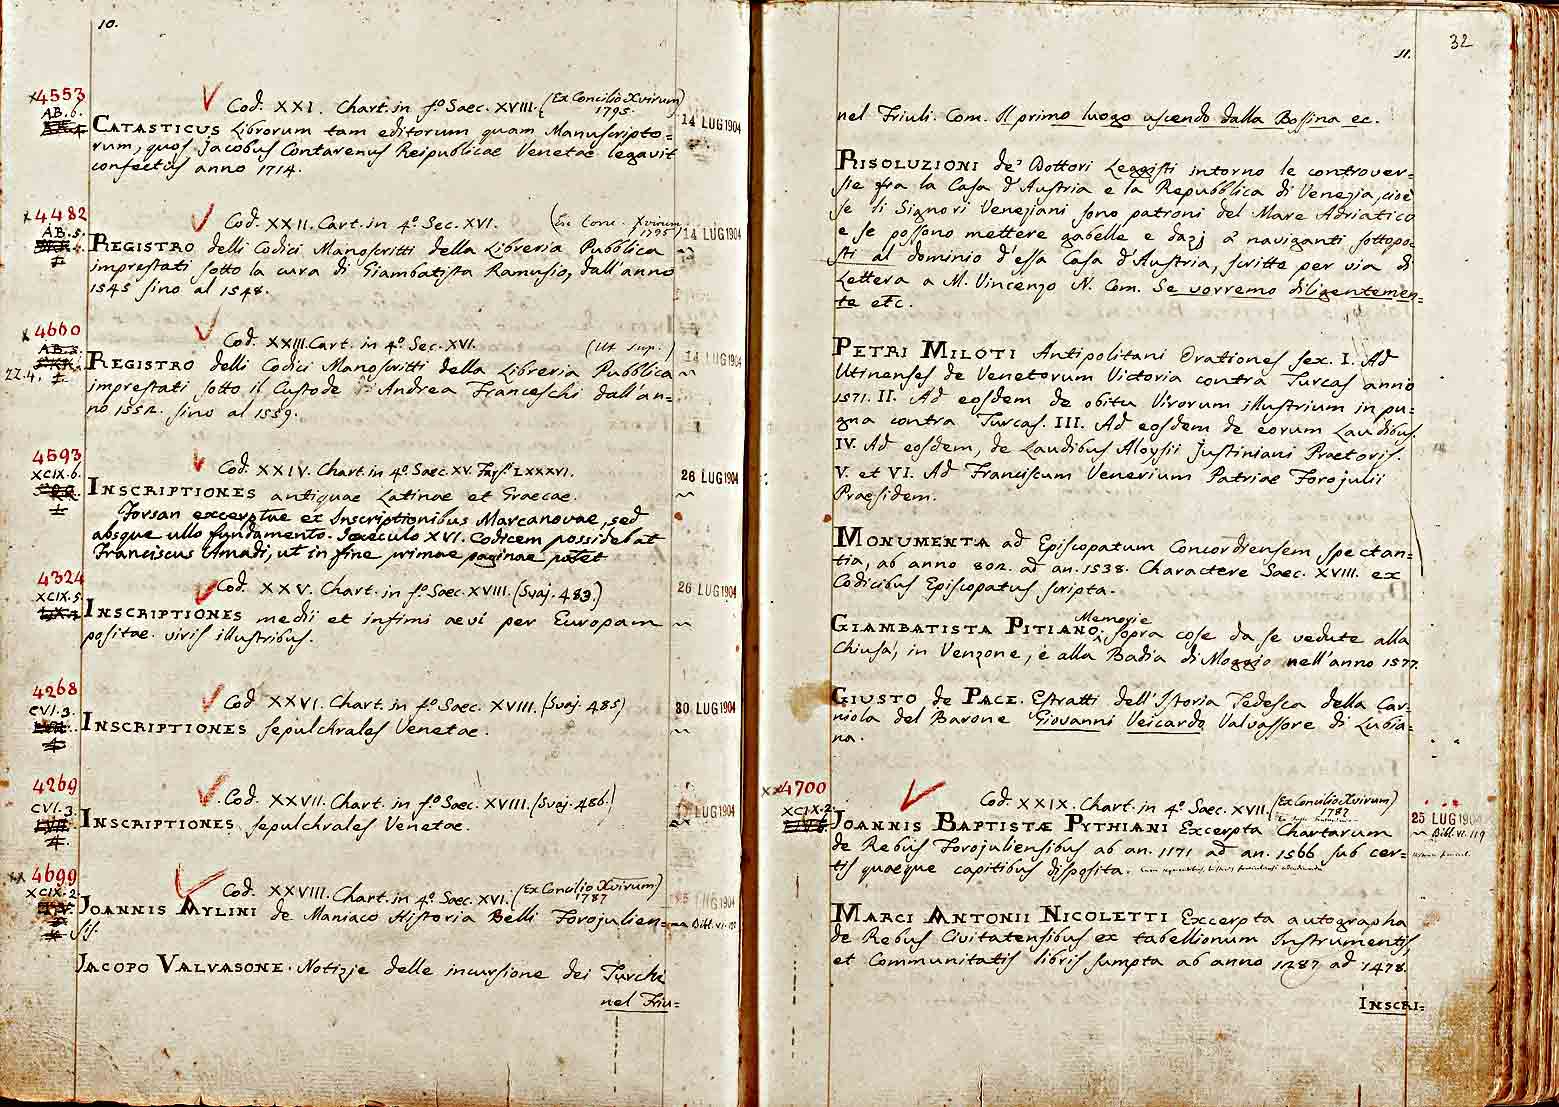 10.
4553
AB. 6.
Cod. XXI. Chart. in f.º Saec. XVIII. (Ex Concilio Xvirum) 1795.
14 LUG 1904
CATASTICUS Librorum tam editorum quam Manuscripto=
rum, quos Jacobus Contarenus Reipublicae Venetae legavit
confectus anno 1714.
4482
AB. 5.
Cod. XXII. Cart. in 4º Sec. XVI. (Ex Conc. Xvirum 1795)
14 LUG 1904
REGISTRO delli Codici Manoscritti della Libreria Pubblica
imprestati sotto la cura di Giambatista Ramusio, dall'anno
1545 sino al 1548.
4660
AB. 3.
22.4.
Cod. XXIII. Cart. in 4º Sec. XVI. (Ut sup.)
14 LUG 1904
REGISTRO delli Codici Manoscritti della Libreria Pubblica
imprestati sotto il Custode Andrea Franceschi dall'an=
no 1552. sino al 1559.
4593
XCIX. 6.
Cod. XXIV. Chart. in 4º Saec. XV. Fasf. LXXXVI.
26 LUG 1904
INSCRIPTIONES antiquae Latinae et Graecae.
Forsan excerptae ex Inscriptionibus Marcanovae, sed
absque ullo fundamento. Saeculo XVI. Codicem possidebat
Franciscus Amadi, ut in fine primae paginae patet
4324
XCIX. 5.
Cod. XXV. Chart. in f.º Saec. XVIII. (Svaj. 483.)
26 LUG 1904
INSCRIPTIONES medii et infimi aevi per Europam
positae viris illustribus.
4268
CVI. 3.
Cod. XXVI. Chart. in f.º Saec. XVIII. (Svaj. 485)
30 LUG 1904
INSCRIPTIONES sepulchrales Venetae.
4269
CVI. 3
Cod. XXVII. Chart. in f.º Saec. XVIII. (Svaj. 486.)
LUG 1904
INSCRIPTIONES sepulchrales Venetae.
4699
XCIX. 2
Cod. XXVIII. Chart. in 4º Saec. XVI. (Ex Concilio Xvirum) 1787
25 LUG 1904
JOANNIS AYLINI de Maniaco Historia Belli Forojulien=
sis.
JACOPO VALVASONE. Notizie delle incursione dei Turchi
nel Friu=
32
11.
nel Friuli. Com. Il primo luogo uscendo dalla Bossina ec.
RISOLUZIONI de' Dottori Leggisti intorno le controver=
sie fra la Casa d'Austria e la Repubblica di Venezia, cioè
se li Signori Veneziani sono patroni del Mare Adriatico
e se possono mettere gabelle e dazj a' naviganti sottopo=
sti al dominio d'essa Casa d'Austria, scritte per via di
Lettera a M. Vincenzo N. Com. Se vorremo diligentemen=
te etc.
PETRI MILOTI Antipolitani Orationes sex. I. Ad
Utinenses de Venetorum Victoria contra Turcas anno
1571. II. Ad eosdem de obitu Virorum illustrium in pu=
gna contra Turcas. III. Ad eosdem de eorum Laudibus.
IV. Ad eosdem, de Laudibus Aloysii Justiniani Praetoris.
V. et VI. Ad Franciscum Venerium Patriae Forojulii
Praesidem.
MONUMENTA ad Episcopatum Concordiensem spectan=
tia, ab anno 802. ad an. 1538. Charactere Saec. XVIII. ex
Codicibus Episcopatus scripta.
GIAMBATISTA PITIANO Memorie sopra cose da se vedute alla
Chiusa, in Venzone, e alla Badia di Moggio nell'anno 1577.
GIUSTO de PACE. Estratti dell'Istoria Tedesca della Car=
niola del Barone Giovanni Veicardo Valvassore di Lubia=
na.
4700
XCIX. 2.
Cod. XXIX. Chart. in 4º Saec. XVII. (Ex Concilio Xvirum) 1787
25 LUG 1904
Bibl. VI. 119
JOANNIS BAPTISTÆ PYTHIANI Excerpta Chartarum
de Rebus Forojuliensibus ab an. 1171 ad an. 1566 sub cer=
tis quaeque capitibus disposita.
MARCI ANTONII NICOLETTI Excerpta autographa
de Rebus Civitatensibus ex tabellionum Instrumentis,
et Communitatis libris sumpta ab anno 1287 ad 1478.
INSCRI=